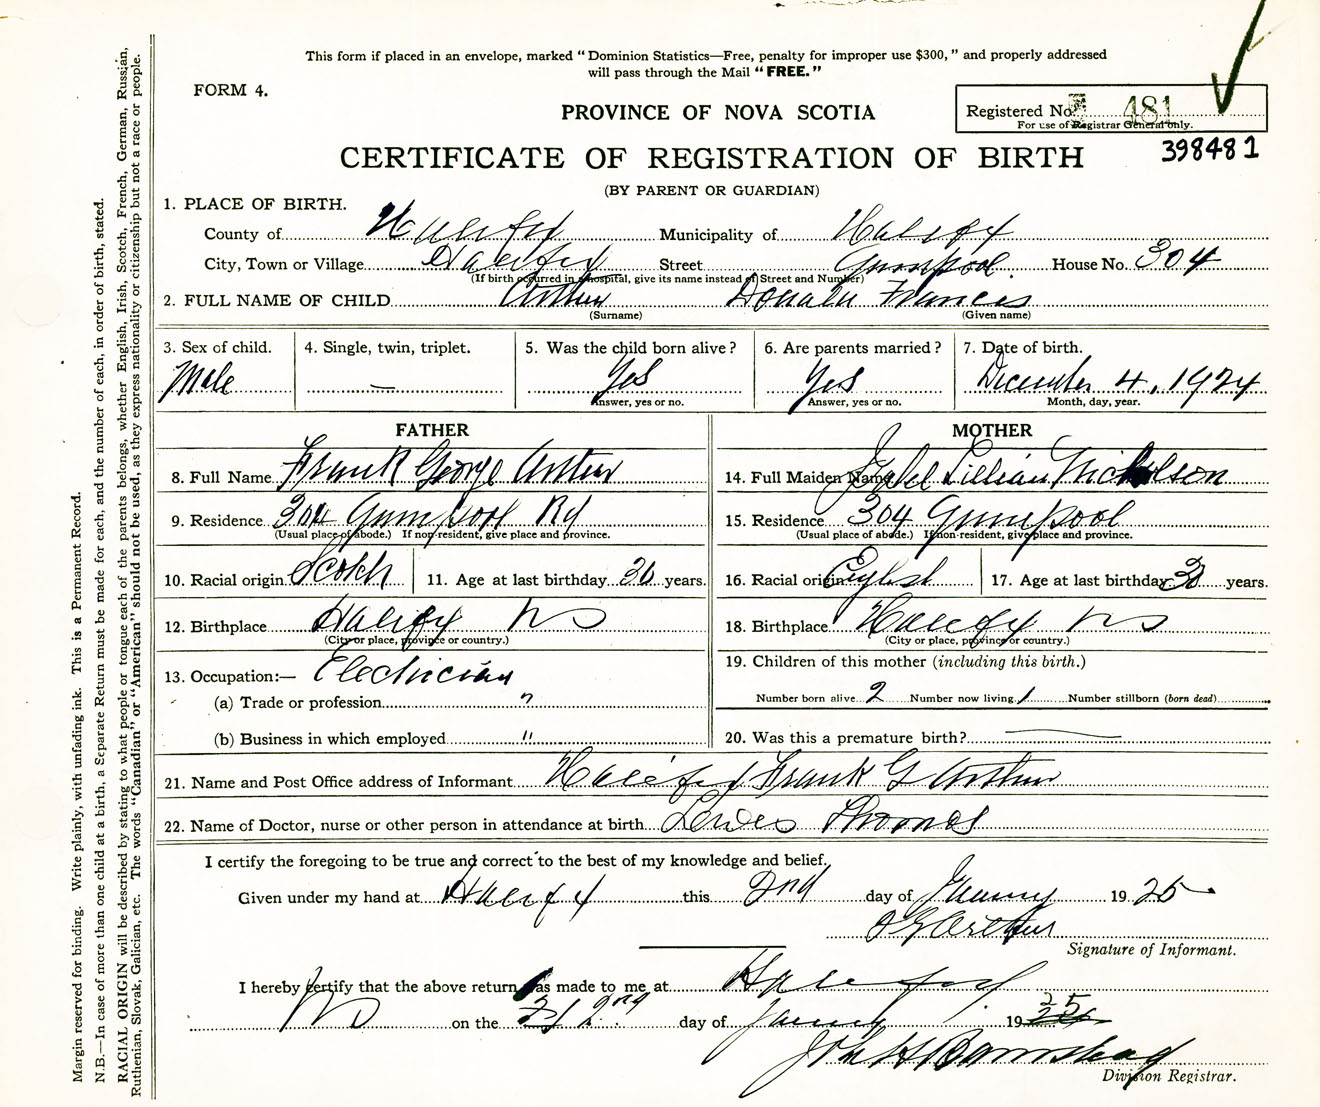 This form if placed in an envelope, marked "Dominion Statistics—Free, penalty for improper use $300," and properly addressed
will pass through the Mail "FREE."
FORM 4.
PROVINCE OF NOVA SCOTIA
Registered No. 481
For use of Registrar General only.
CERTIFICATE OF REGISTRATION OF BIRTH
398481
(BY PARENT OR GUARDIAN)
1. PLACE OF BIRTH.
County of Halifax Municipality of Halifax
City, Town or Village Halifax Street Gunpool. House No. 304
(If birth occurred in a hospital, give its name instead of Street and Number)
2. FULL NAME OF CHILD Arthur Donald Francis
(Surname) (Given name)
3. Sex of child. 4. Single, twin, triplet. 5. Was the child born alive? 6. Are parents married? 7. Date of birth.
Male — Yes Yes December 4, 1924
Answer, yes or no. Answer, yes or no. Month, day, year.
FATHER MOTHER
8. Full Name Frank George Arthur 14. Full Maiden Name Isabel Lillian Nicholson
9. Residence 304 Gunpool Rd 15. Residence 304 Gunpool
(Usual place of abode.) If non-resident, give place and province. (Usual place of abode.) If non-resident, give place and province.
10. Racial origin Scotch 11. Age at last birthday years. 16. Racial origin English 17. Age at last birthday years.
12. Birthplace Halifax NS 18. Birthplace Halifax NS
(City or place, province or country.) (City or place, province or country.)
13. Occupation:— Electrician 19. Children of this mother (including this birth.)
(a) Trade or profession " Number born alive 2 Number now living 1 Number stillborn (born dead)
(b) Business in which employed " 20. Was this a premature birth? —
21. Name and Post Office address of Informant Halifax Frank G Arthur
22. Name of Doctor, nurse or other person in attendance at birth Lewis Thomas
I certify the foregoing to be true and correct to the best of my knowledge and belief.
Given under my hand at Halifax this 2nd day of January 1925
F G Arthur
Signature of Informant.
I hereby certify that the above return was made to me at Halifax
NS on the 2nd day of January 1925
John H Barnstead
Division Registrar.
Margin reserved for binding. Write plainly, with unfading ink. This is a Permanent Record.
N.B.—In case of more than one child at a birth, a Separate Return must be made for each, and the number of each, in order of birth, stated.
RACIAL ORIGIN will be described by stating to what people or tongue each of the parents belongs, whether English, Irish, Scotch, French, German, Russian,
Ruthenian, Slovak, Galician, etc. The words "Canadian" or "American" should not be used, as they express nationality or citizenship but not a race or people.